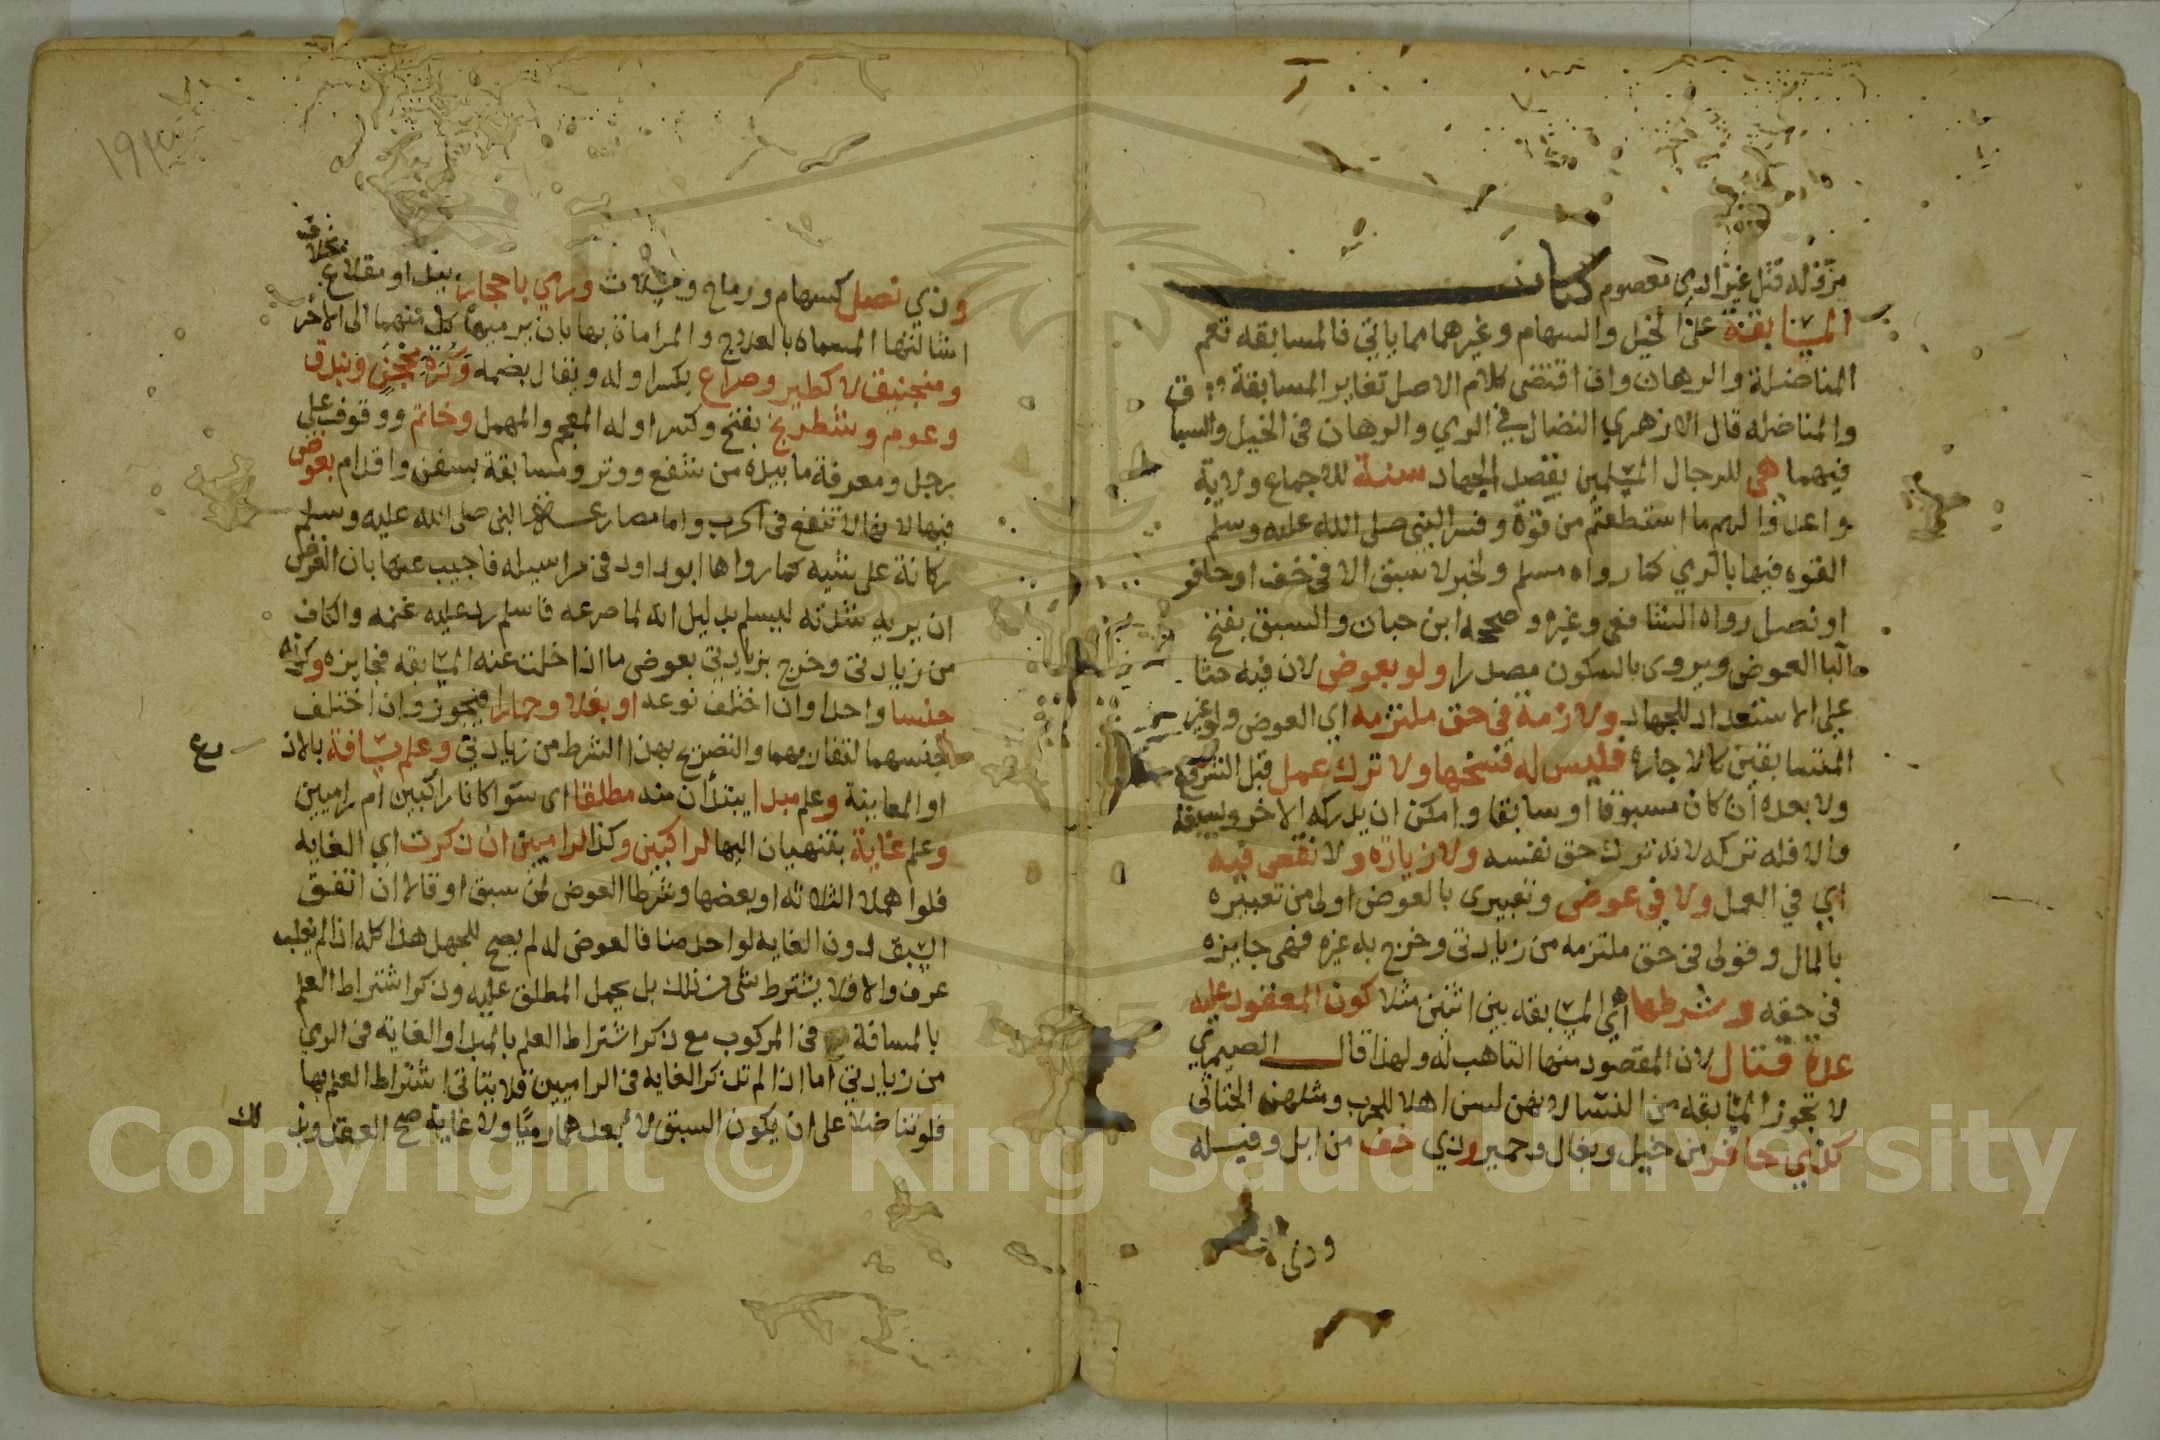 من قوله قتل غير الدين معصوم كتاب
المسابقة على الخيل والسهام وغيرهما مما ياتي فالمسابقه تعم
المناضلة والرهان وان اقتضى كلام الاصل تغاير المسابقة
والمناضله قال الازهري النضال في الرمي والرهان في الخيل والسباق
فيهما هي للرجال المسلمين بقصد الجهاد سنة للاجماع ولاية
واعدوا لهم ما استطعتم من قوة وفسر النبي صلى الله عليه وسلم
القوه فيها بالرمي كما رواه مسلم ولخبر لا سبق الا في خف او حافر
او نصل رواه الشافعي وغيره وصححه ابن حبان والسبق بفتح
الباء العوض ويروى بالسكون مصدرا ولو بعوض لان فيه حثا
على الاستعداد للجهاد ولازمة في حق ملتزمه اي العوض ولو غير
المتسابقين كالاجارة فليس له فسخها ولا ترك عمل قبل الشروع
ولا بعده ان كان مسبوقا او سابقا وامكن ان يدركه الاخر ويسبقه
والا فله تركه لانه ترك حق نفسه ولا زيادة ولا نقص فيه
اي في العمل ولا في عوض وتعبيري بالعوض اولى من تعبيره
بالمال وقولي في حق ملتزمه من زيادتي وخرج به غيره فهي جايزه
في حقه وشرطها اي المسابقه بين اثنين مثلا كون المعقود عليه
عدة قتال لان المقصود منها التاهب له ولهذا قال الصيمري
لا تجوز المسابقه من النساء لانهن لسن اهلا للحرب ومثلهن الخناثى
كذي حافر من خيل وبغال وحمير وذي خف من ابل وفيله
وذي
وذي نصل كسهام ورماح ومسلات ورمي باحجار بيد او مقلاع بخلاف
اشالتها المسماه بالعلاج والمراماة بها بان يرميها كل منهما الى الاخر
ومنجنيق لا كطير وصراع بكسر اوله ويقال بضمه وكرة محجن وبندق
وعوم وشطرنج بفتح وكسر اوله المعجم والمهمل وخاتم ووقوف على
رجل ومعرفة ما بيده من شفع ووتر ومسابقة بسفن واقدام بعوض
فيها لانها لا تنفع في الحرب واما مصارعة النبي صلى الله عليه وسلم
ركانة على شيه كما رواها ابو داود في مراسيله فاجيب عنها بان الغرض
ان يريه شدته ليسلم بدليل انه لما صرعه فاسلم رد عليه غنمه والكاف
من زيادتي وخرج بزيادتي بعوض ما اذا خلت عنه المسابقه فجايزه وكونه
جنسا واحدا وان اختلف نوعه او بغلا وحمارا فيجوز وان اختلف
جنسهما لتقاربهما والتصريح بهذا الشرط من زيادتي وعلم مسافة بالاذ
رع
او المعاينة وعلم مبدا يبتدان منه مطلقا اي سوا كانا راكبين ام راميين
وعلم غاية ينتهيان اليها لراكبين وكذا لراميين ان ذكرت اي الغايه
فلو اهملا الثلاثه او بعضها وشرطا العوض لمن سبق او قالا ان اتفق
السبق دون الغايه لواحد منا فالعوض له لم يصح للجهل هذا كله اذا لم يغلب
عرف والا فلا يشترط شيء من ذلك بل يحمل المطلق عليه وذكر اشتراط العلم
بالمسافة في المركوب مع ذكر اشتراط العلم بالمبدا والغاية في الرمي
من زيادتي اما اذا لم تذكر الغايه في الراميين فلا يتاتى اشتراط العلم بها
فلو تناضلا على ان يكون السبق لابعدهما رميا ولا غاية صح العقد وبذ
لك